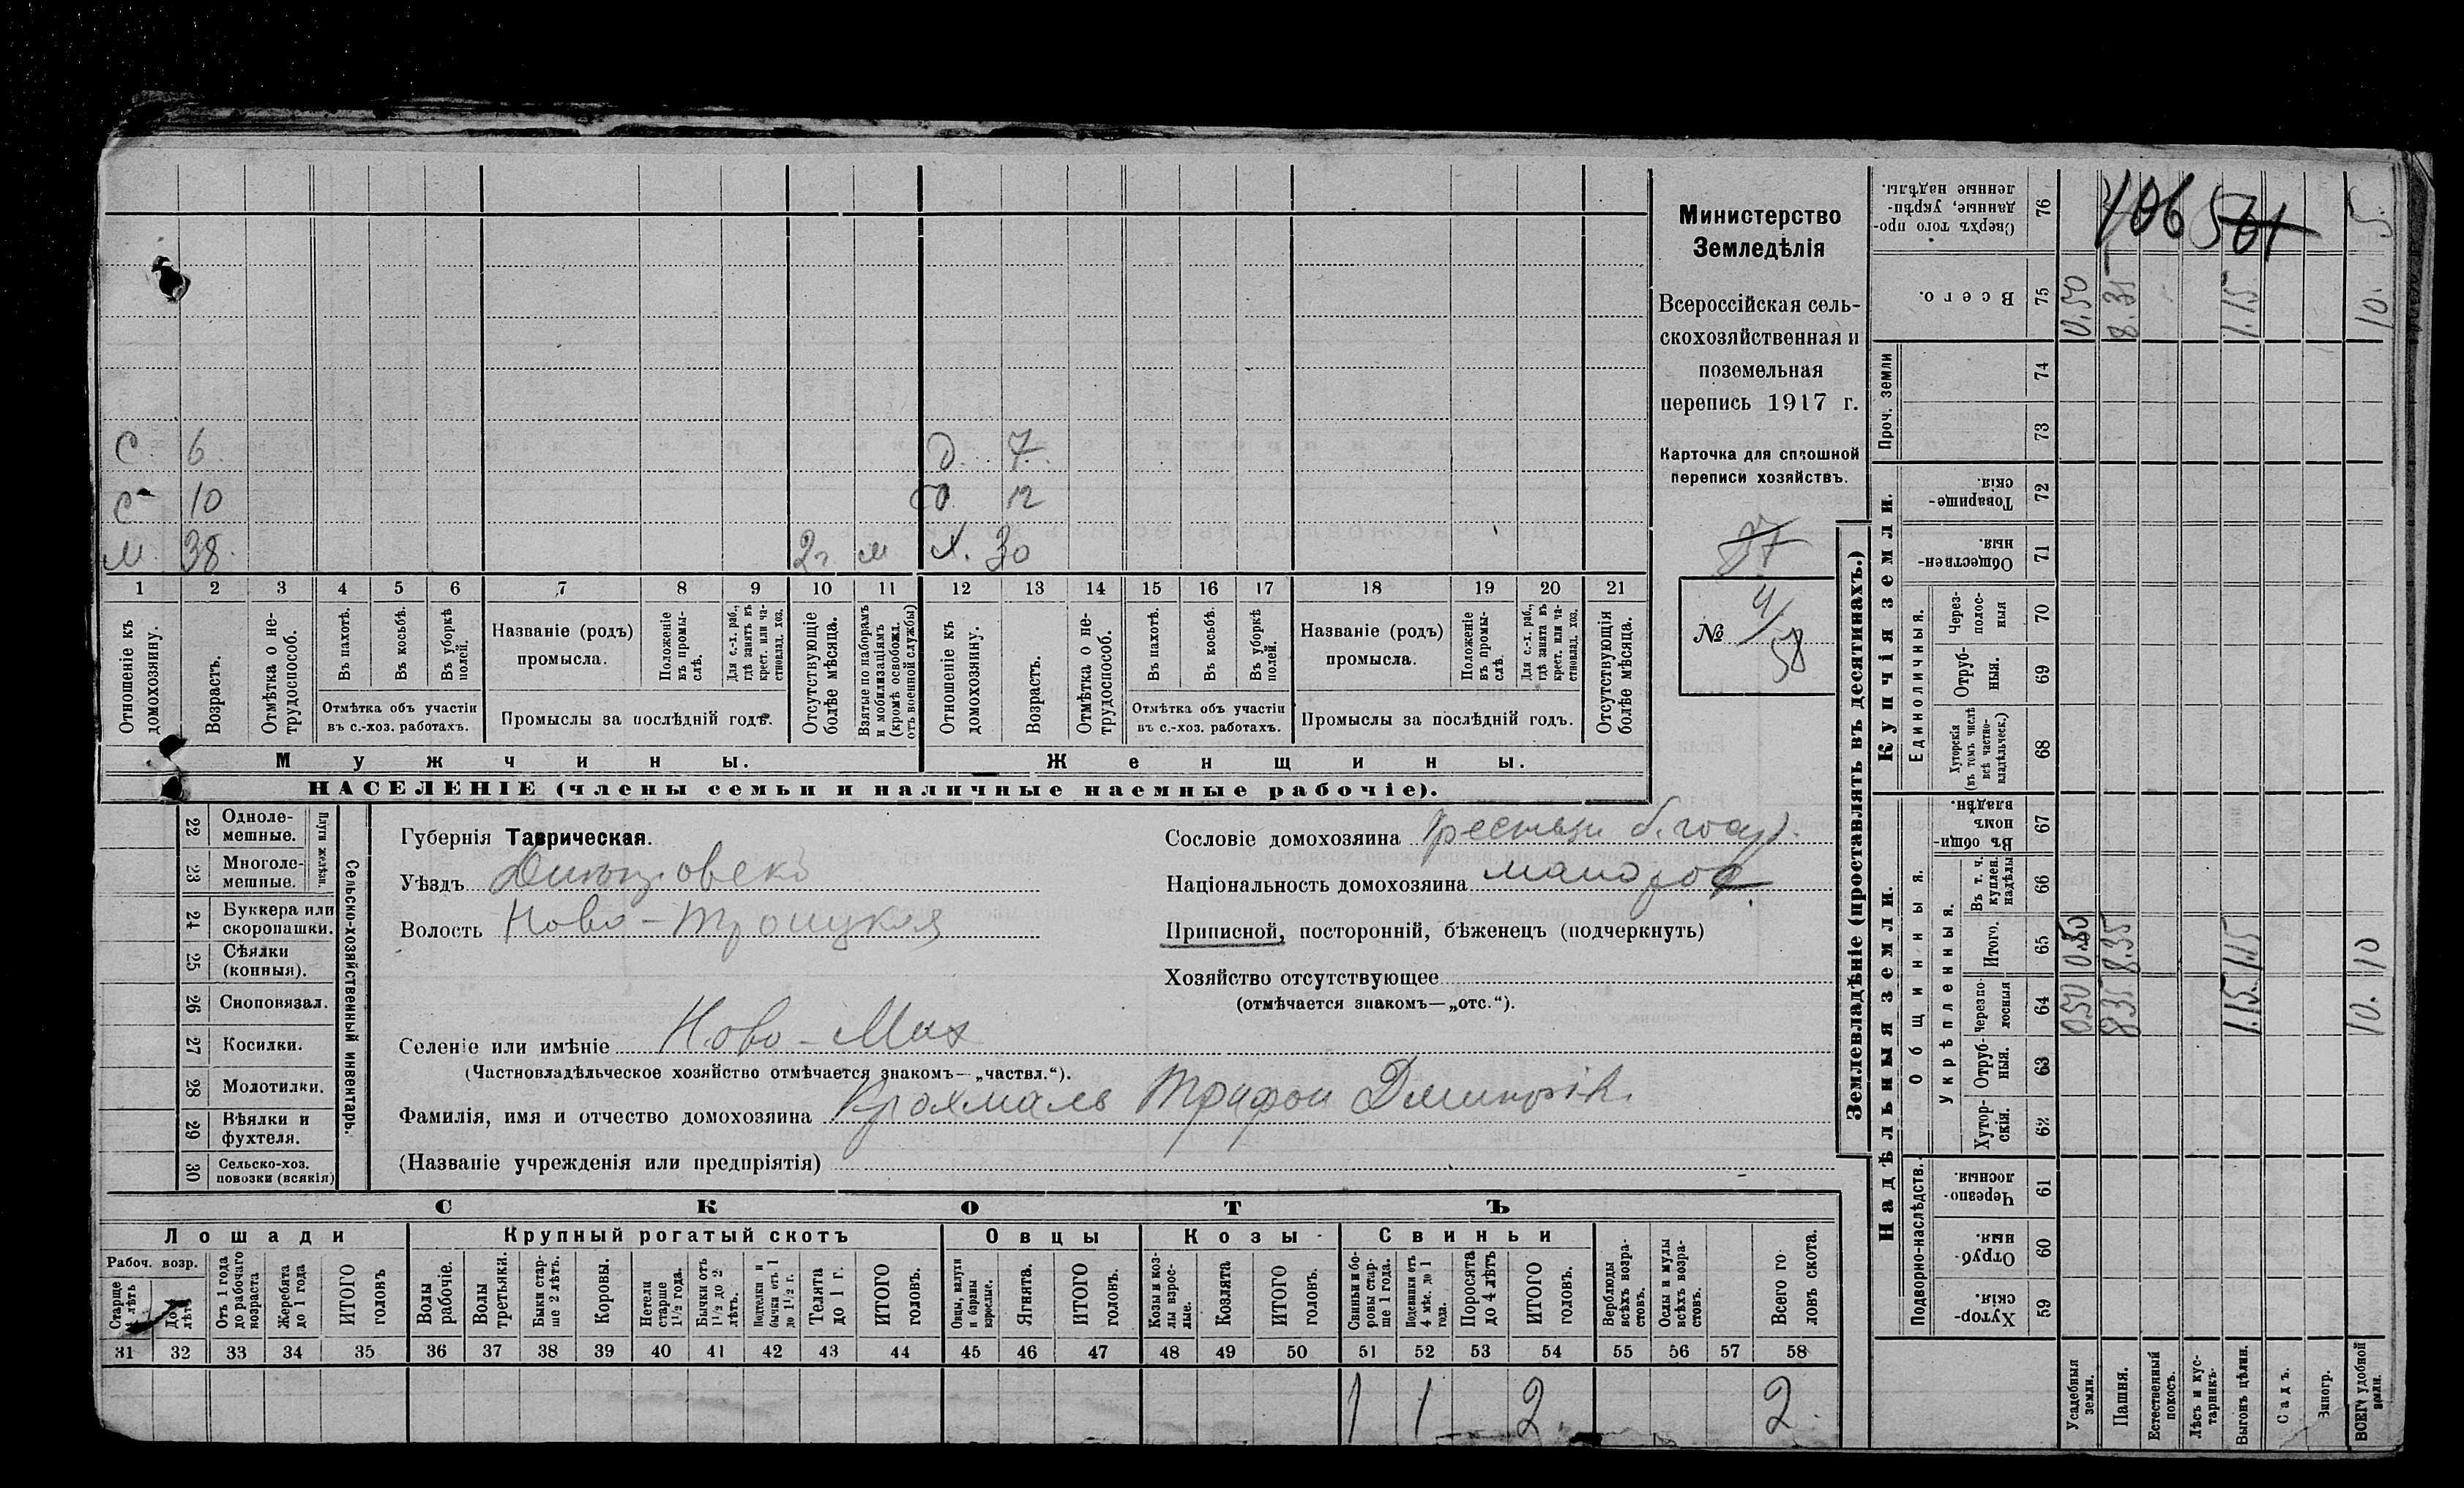 С. 6. Д. 7.
С 10 Д. 12
М. 38. 2 г. м Х. 30
1 2 3 4 5 6 7 8 9 10 11 12 13 14 15 16 17 18 19 20 21
Отношеніе къ домохозяину.
Возрастъ.
Отмѣтка о не-трудоспособ.
Въ пахотѣ.
Въ косьбѣ.
Въ уборкѣ полей.
Отмѣтка объ участіи
въ с.-хоз. работахъ.
Названіе (родъ)
промысла.
Положеніе въ промы-слѣ.
Для с.-х. раб., гдѣ занятъ въ крест. или ча-стновлад. хоз.
Промыслы за послѣдній годъ.
Отсутствующіе болѣе мѣсяца.
Взятые по наборамъ и мобилизаціямъ (кромѣ освобожд. отъ военной службы)
Отношеніе къ домохозяину.
Возрастъ.
Отмѣтка о не-трудоспособ.
Въ пахотѣ.
Въ косьбѣ.
Въ уборкѣ полей.
Отмѣтка объ участіи
въ с.-хоз. работахъ.
Названіе (родъ)
промысла.
Положеніе въ промы-слѣ.
Для с.-х. раб., гдѣ занята въ крест. или ча-стновлад. хоз.
Промыслы за послѣдній годъ.
Отсутствующія болѣе мѣсяца.
Мужчины. Женщины.
НАСЕЛЕНІЕ (члены семьи и наличные наемные рабочіе).
Министерство
Земледѣлія
Всероссійская сель-
скохозяйственная и
поземельная
перепись 1917 г.
Карточка для сплошной
переписи хозяйствъ.
57
№ 4/58
22 Одноле-мешные.
23 Многоле-мешные.
Плуги желѣзн.
24 Буккера или скоропашки.
25 Сѣялки (конныя).
26 Сноповязал.
27 Косилки.
28 Молотилки.
29 Вѣялки и фухтеля.
30 Сельско-хоз. повозки (всякія)
Сельско-хозяйственный инвентарь.
Губернія Таврическая.
Уѣздъ Днѣпровскъ
Волость Ново-Троицкая
Селеніе или имѣніе Ново-Мих
(Частновладѣльческое хозяйство отмѣчается знакомъ—„частвл.“).
Фамилія, имя и отчество домохозяина Крохмаль Трифон Дмитрів.
(Названіе учрежденія или предпріятія)
Сословіе домохозяина Крестьян б. госуд.
Національность домохозяина малорос.
Приписной, посторонній, бѣженецъ (подчеркнуть)
Хозяйство отсутствующее
(отмѣчается знакомъ—„отс.“).
СКОТЪ
Лошади Крупный рогатый скотъ Овцы Козы Свиньи
Рабоч. возр.
Старше 4 лѣтъ
До 4 лѣтъ
Отъ 1 года до рабочаго возраста
Жеребята до 1 года
ИТОГО головъ
Волы рабочіе.
Волы третьяки.
Быки стар-ше 2 лѣтъ.
Коровы.
Нетели старше 1½ года.
Бычки отъ 1½ до 2 лѣтъ.
Подтелки и бычки отъ 1 до 1½ г.
Телята до 1 г.
ИТОГО головъ.
Овцы, валухи и бараны взрослые.
Ягнята.
ИТОГО головъ.
Козы и коз-лы взрос-лые.
Козлята
ИТОГО головъ.
Свиньи и бо-ровы стар-ше 1 года.
Подсвинки отъ 4 мѣс. до 1 года.
Поросята до 4 лѣтъ
ИТОГО головъ.
Верблюды всѣхъ возра-стовъ.
Ослы и мулы всѣхъ возра-стовъ.
Всего го-ловъ скота.
31 32 33 34 35 36 37 38 39 40 41 42 43 44 45 46 47 48 49 50 51 52 53 54 55 56 57 58
1 1 2 2
Землевладѣніе (проставлять въ десятинахъ.)
Надѣльныя земли. Купчія земли. Проч. земли
Подворно-наслѣдств. Общинныя. Единоличныя.
Укрѣпленныя.
Хутор-скія. 59
Отруб-ныя. 60
Черезпо-лосныя. 61
Хутор-скія. 62
Отруб-ныя. 63
Черезпо-лосныя 64
Итого. 65
Въ т. ч. куплен. надѣлы 66
Въ общин-номъ владѣн. 67
Хуторскія (въ томъ числѣ всѣ частно-владѣльческ.) 68
Отруб-ныя. 69
Через-полос-ныя 70
Обществен-ныя. 71
Товарище-скія. 72
73
74
Всего. 75
Сверхъ того про-данные, укрѣп-ленные надѣлы. 76
406 561
Усадебныя земли. 0.50 0.50 0.50
Пашня. 8.35 8.35 8.35
Естественный покосъ.
Лѣсъ и кус-тарникъ.
Выгонъ цѣлин. 1.15 1.15 1.15
Садъ.
Виногр.
ВСЕГО удобной земли. 10. 10 10. 5.